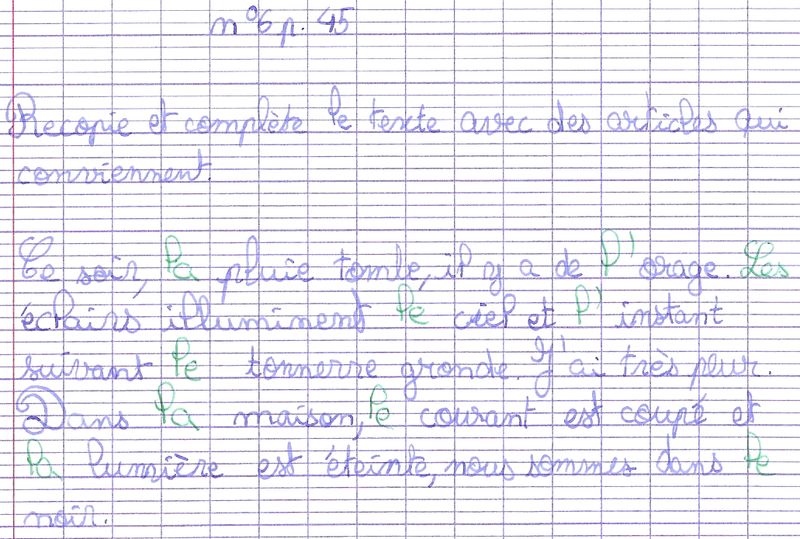 n°6 p. 45
Recopie et complète le texte avec des articles qui
conviennent.
Ce soir, la pluie tombe, il y a de l'orage. Les
éclairs illuminent le ciel et l'instant
suivant le tonnerre gronde. J'ai très peur.
Dans la maison, le courant est coupé et
la lumière est éteinte, nous sommes dans le
noir.